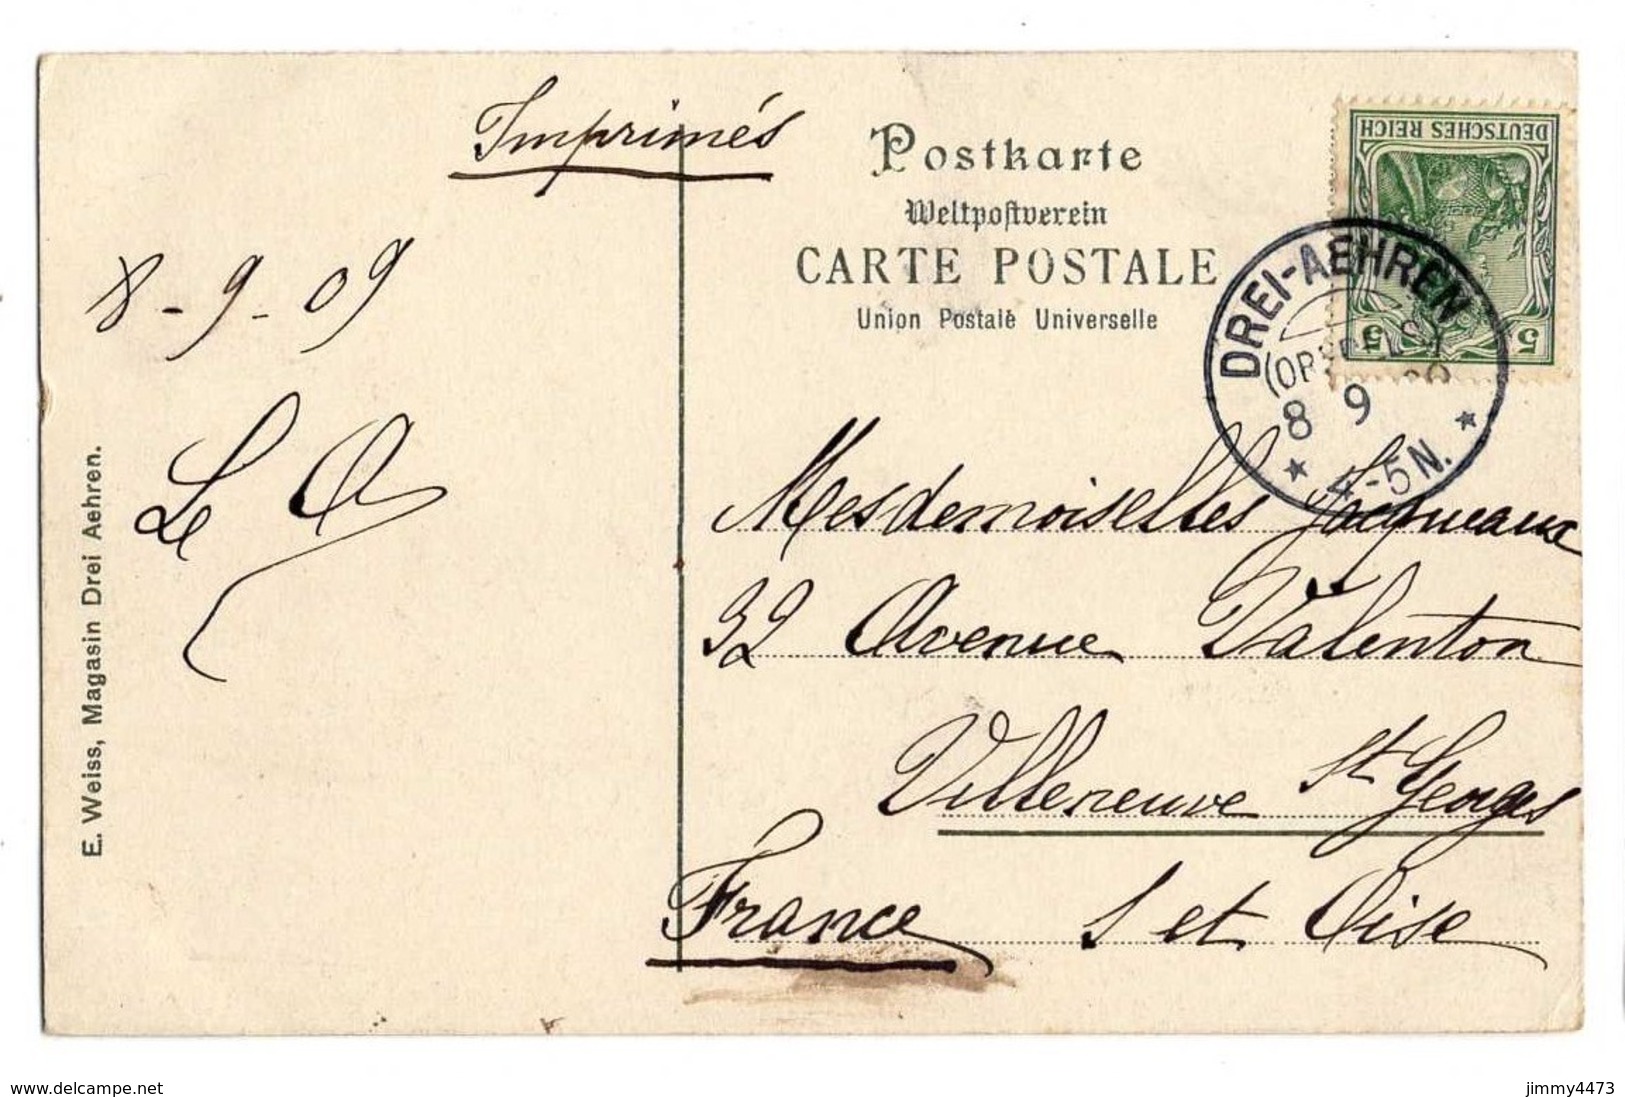 Imprimés
Postkarte
Weltpostverein
CARTE POSTALE
Union Postale Universelle
DEUTSCHES REICH
5 5
DREI-AEHREN
8 9
4-5N.
8-9-09
Le
E. Weiss, Magasin Drei Aehren.
Mesdemoiselles Jacqueaux
32 Avenue Valenton
Villeneuve St Georges
France S et Oise
www.delcampe.net
jimmy4473